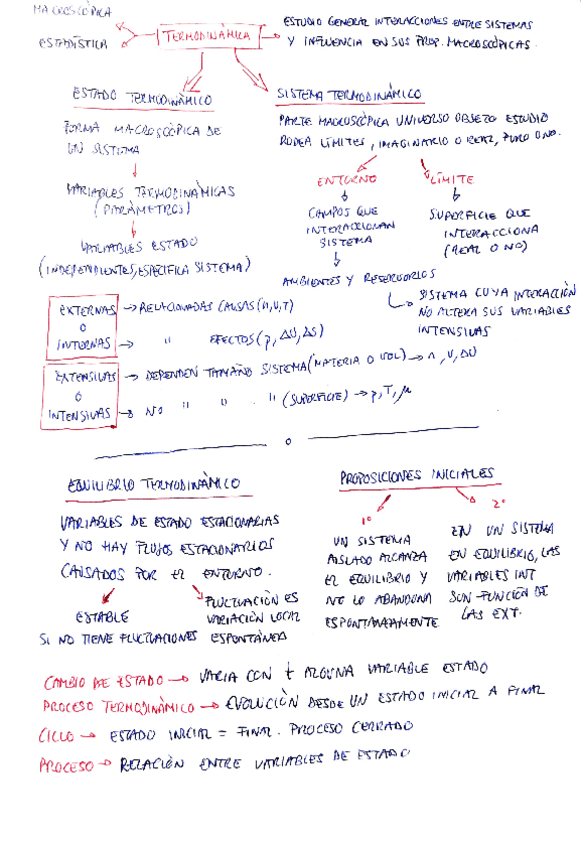 MACROSCÒPICA
ESTADÍSTICA
TERMODINÀMICA
ESTUDIO GENERAL INTERACCIONES ENTRE SISTEMAS
Y INFLUENCIA EN SUS PROP. MACROSCÓPICAS.
ESTADO TERMODINÀMICO
FORMA MACROSCÒPICA DE
UN SISTEMA
VARIABLES TERMODINÀMICAS
(PARÀMETROS)
VARIABLES ESTADO
(INDEPENDIENTES, ESPECIFICA SISTEMA)
SISTEMA TERMODINÀMICO
PARTE MACROSCÒPICA UNIVERSO OBJETO ESTUDIO
RODEA LÍMITES, IMAGINARIO O REAL, FIJO O NO.
ENTORNO
CAMPOS QUE
INTERACCIONAN
SISTEMA
AMBIENTES Y RESERVORIOS
SISTEMA CUYA INTERACCIÓN
NO ALTERA SUS VARIABLES
INTENSIVAS
LÍMITE
SUPERFICIE QUE
INTERACCIONA
(REAL O NO)
EXTERNAS → RELACIONADAS CAUSAS (n, V, T)
O
INTERNAS → " EFECTOS (p, ΔU, ΔS)
EXTENSIVAS → DEPENDEN TAMAÑO SISTEMA (MATERIA O VOL) → n, V, ΔU
Ó
INTENSIVAS → NO " " " (SUPERFICIE) → p, T, μ
EQUILIBRIO TERMODINÀMICO
VARIABLES DE ESTADO ESTACIONARIAS
Y NO HAY FLUJOS ESTACIONARIOS
CAUSADOS POR EL ENTORNO.
ESTABLE
SI NO TIENE FLUCTUACIONES
FLUCTUACIÓN ES
VARIACIÓN LOCAL
ESPONTÁNEA
PROPOSICIONES INICIALES
1º
UN SISTEMA
AISLADO ALCANZA
EL EQUILIBRIO Y
NO LO ABANDONA
ESPONTANEAMENTE
2º
EN UN SISTEMA
EN EQUILIBRIO, LAS
VARIABLES INT
SON FUNCIÓN DE
LAS EXT.
CAMBIO DE ESTADO → VARIA CON t ALGUNA VARIABLE ESTADO
PROCESO TERMODINÀMICO → EVOLUCIÒN DESDE UN ESTADO INICIAL A FINAL
CICLO → ESTADO INICIAL = FINAL. PROCESO CERRADO
PROCESO → RELACIÒN ENTRE VARIABLES DE ESTADO